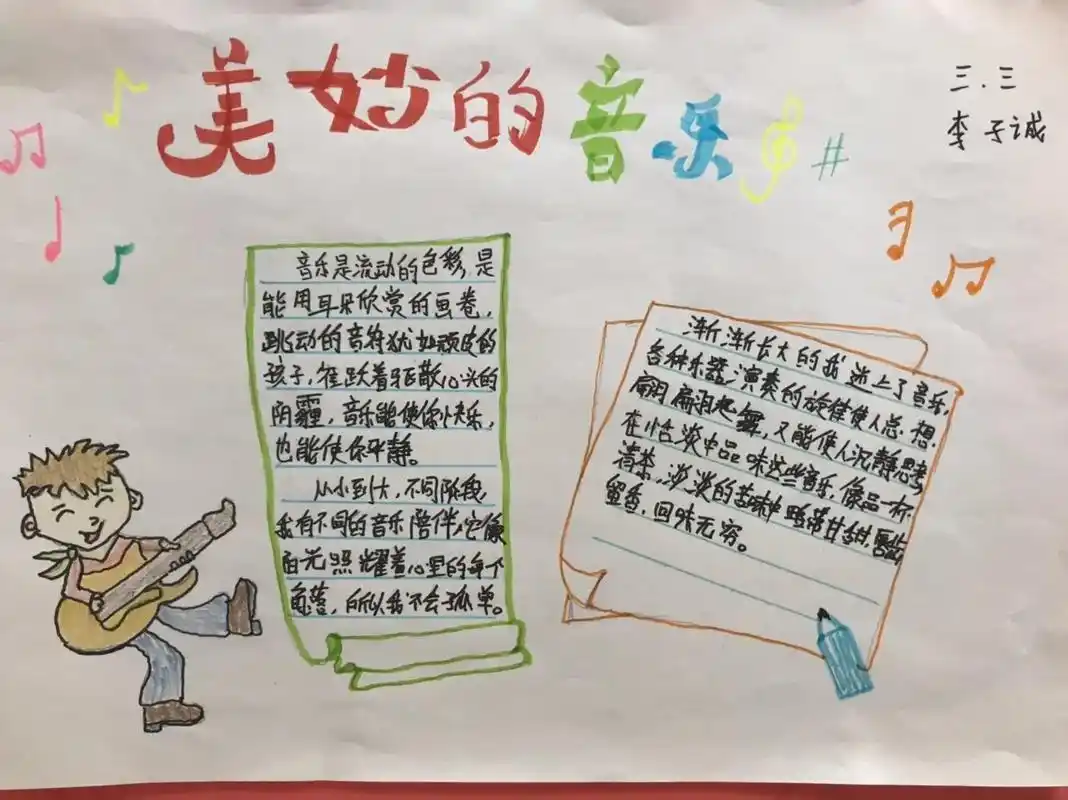 美妙的音乐
三.三
李子诚
音乐是流动的色彩,是
能用耳朵欣赏的画卷,
跳动的音符犹如顽皮的
孩子,雀跃着驱散心头的
阴霾,音乐能使你快乐,
也能使你平静。
从小到大,不同阶段,
我有不同的音乐陪伴,它像
阳光照耀着心里的每个
角落,所以我不会孤单。
渐渐长大的我迷上了音乐,
各种乐器演奏的旋律使人总想
翩翩起舞,又能使人沉静思考,
在恬淡中品味这些音乐,像品一杯
清茶,淡淡的苦味中略带甘甜,唇齿
留香,回味无穷。